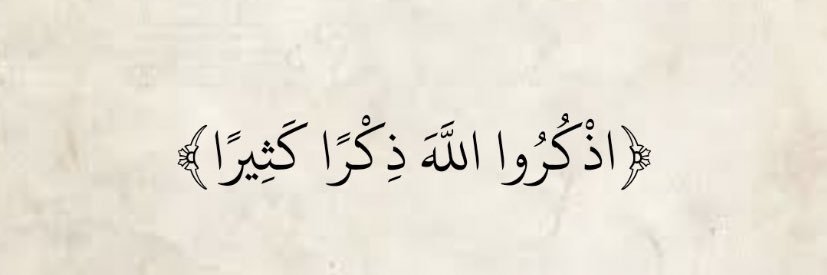 ﴿اذْكُرُوا اللَّهَ ذِكْرًا كَثِيرًا﴾